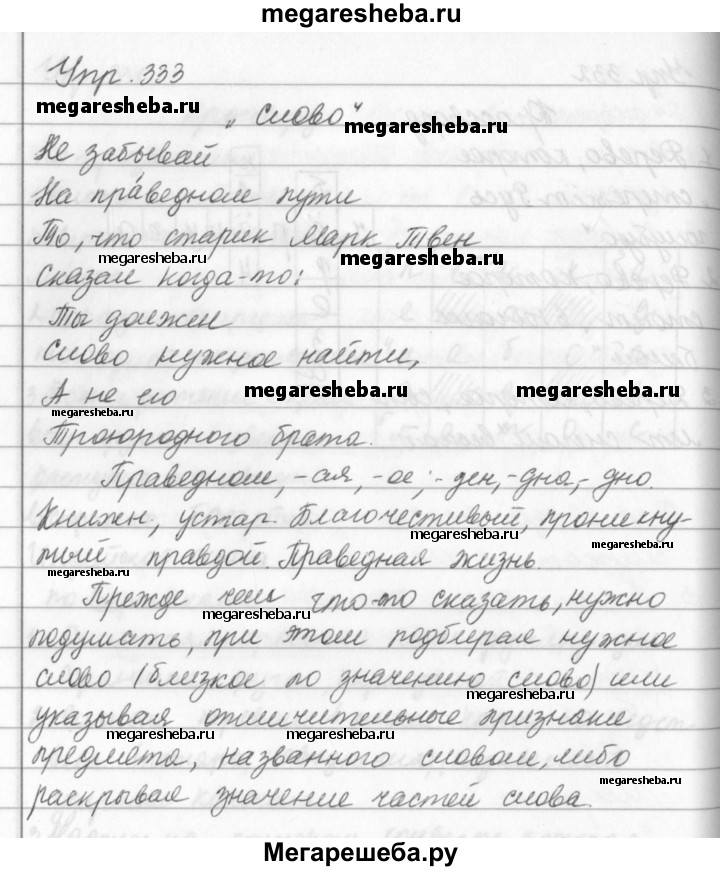 megaresheba.ru
Упр. 333
megaresheba.ru „Слово“ megaresheba.ru
Не забывай
На пра́ведном пути
То, что старик Марк Твен
megaresheba.ru megaresheba.ru
Сказал когда-то:
Ты должен
Слово нужное найти,
А не его megaresheba.ru megaresheba.ru
megaresheba.ru
Троюродного брата.
Праведном, -ая, -ое; -ден, -дна, -дно.
Книжн, устар. Благочестивый, проникну-
megaresheba.ru megaresheba.ru
тый правдой. Праведная жизнь.
megaresheba.ru
Прежде чем что-то сказать, нужно
megaresheba.ru
подумать, при этом подбирая нужное
слово (близкое по значению слово) или
megaresheba.ru
указывая отличительные признаки
megaresheba.ru megaresheba.ru
предмета, названного словом, либо
megaresheba.ru
раскрывая значение частей слова.
Мегарешеба.ру